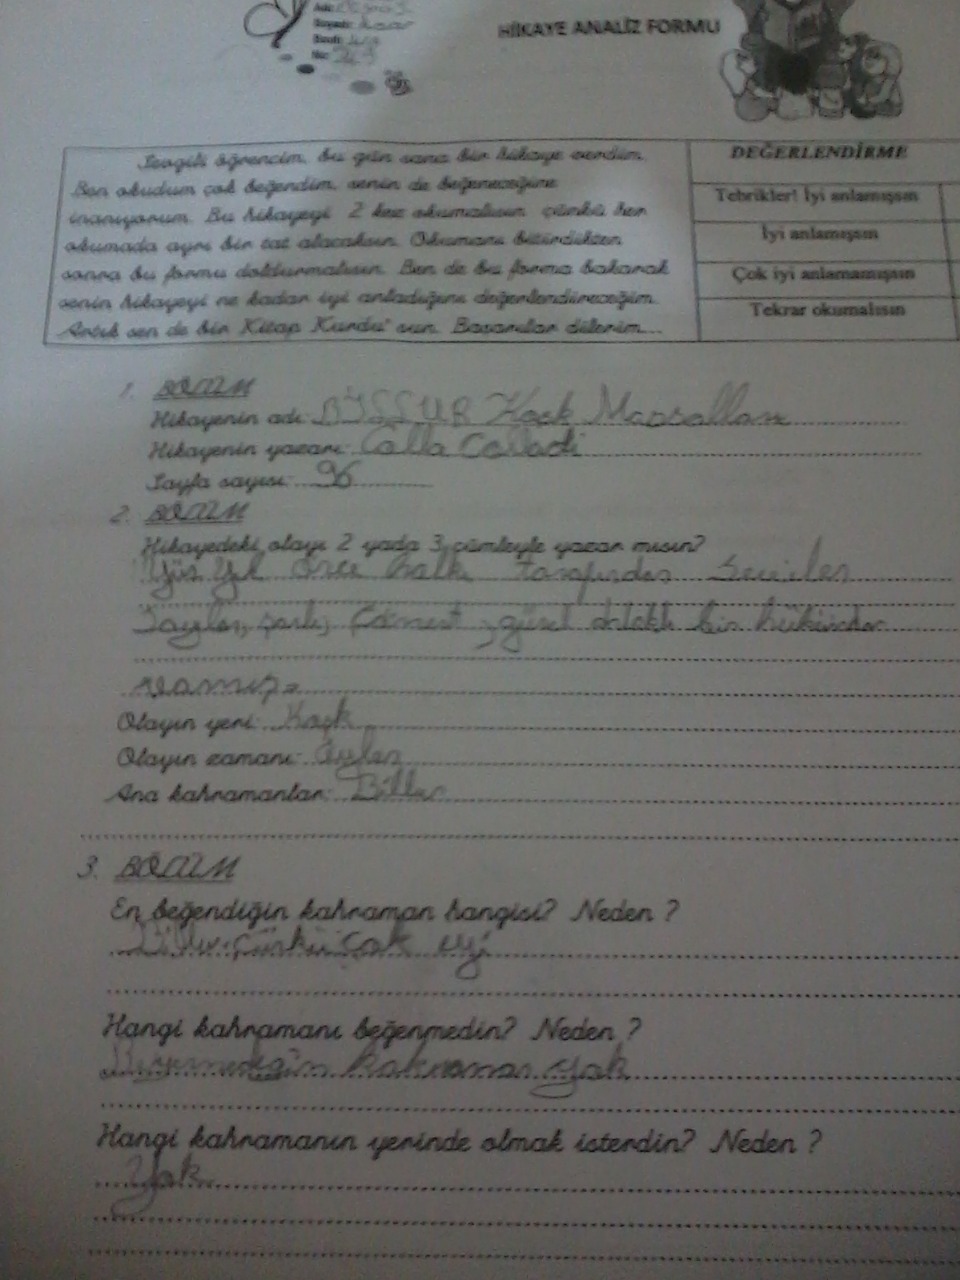 Adı:
Soyadı:
Sınıfı:
No:
HİKAYE ANALİZ FORMU
Sevgili öğrencim, bu gün sana bir hikaye verdim.
Ben okudum çok beğendim, senin de beğeneceğine
inanıyorum. Bu hikayeyi 2 kez okumalısın çünkü her
okumada ayrı bir tat alacaksın. Okumanı bitirdikten
sonra bu formu doldurmalısın. Ben de bu forma bakarak
senin hikayeyi ne kadar iyi anladığını değerlendireceğim.
Artık sen de bir Kitap Kurdu' sun. Başarılar dilerim...
DEĞERLENDİRME
Tebrikler! İyi anlamışsın
İyi anlamışsın
Çok iyi anlamamışsın
Tekrar okumalısın
1. BÖLÜM
Hikayenin adı: Köşk Masalları
Hikayenin yazarı:
Sayfa sayısı: 96
2. BÖLÜM
Hikayedeki olayı 2 yada 3 cümleyle yazar mısın?
Yüz yıl önce halk tarafından sevilen
güzel ahlaklı bir hükümdar
Olayın yeri: Köşk
Olayın zamanı:
Ana kahramanlar: Billur
3. BÖLÜM
En beğendiğin kahraman hangisi? Neden ?
Billur çünkü çok iyi
Hangi kahramanı beğenmedin? Neden ?
kahraman yok
Hangi kahramanın yerinde olmak isterdin? Neden ?
Yok